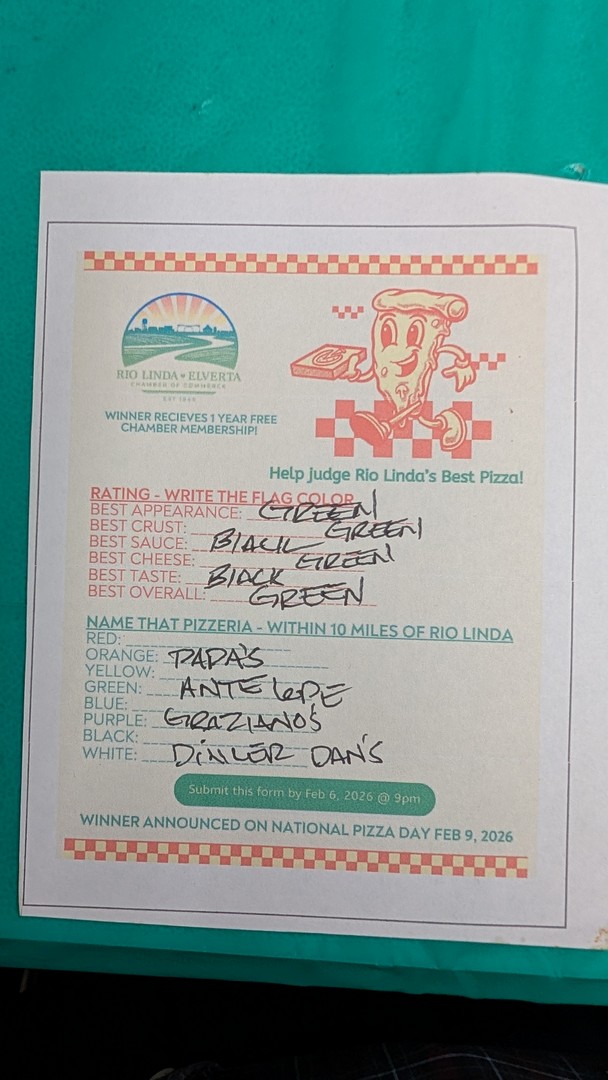 RIO LINDA • ELVERTA
CHAMBER OF COMMERCE
EST 1949
WINNER RECIEVES 1 YEAR FREE
CHAMBER MEMBERSHIP!
Help judge Rio Linda's Best Pizza!
RATING - WRITE THE FLAG COLOR
BEST APPEARANCE: GREEN
BEST CRUST: GREEN
BEST SAUCE: BlACK
BEST CHEESE: GREEN
BEST TASTE: BlACK
BEST OVERALL: GREEN
NAME THAT PIZZERIA - WITHIN 10 MILES OF RIO LINDA
RED:
ORANGE: PAPA'S
YELLOW:
GREEN: ANTELOPE
BLUE:
PURPLE: GRAZIANO'S
BLACK:
WHITE: DiNGER DAN'S
Submit this form by Feb 6, 2026 @ 9pm
WINNER ANNOUNCED ON NATIONAL PIZZA DAY FEB 9, 2026